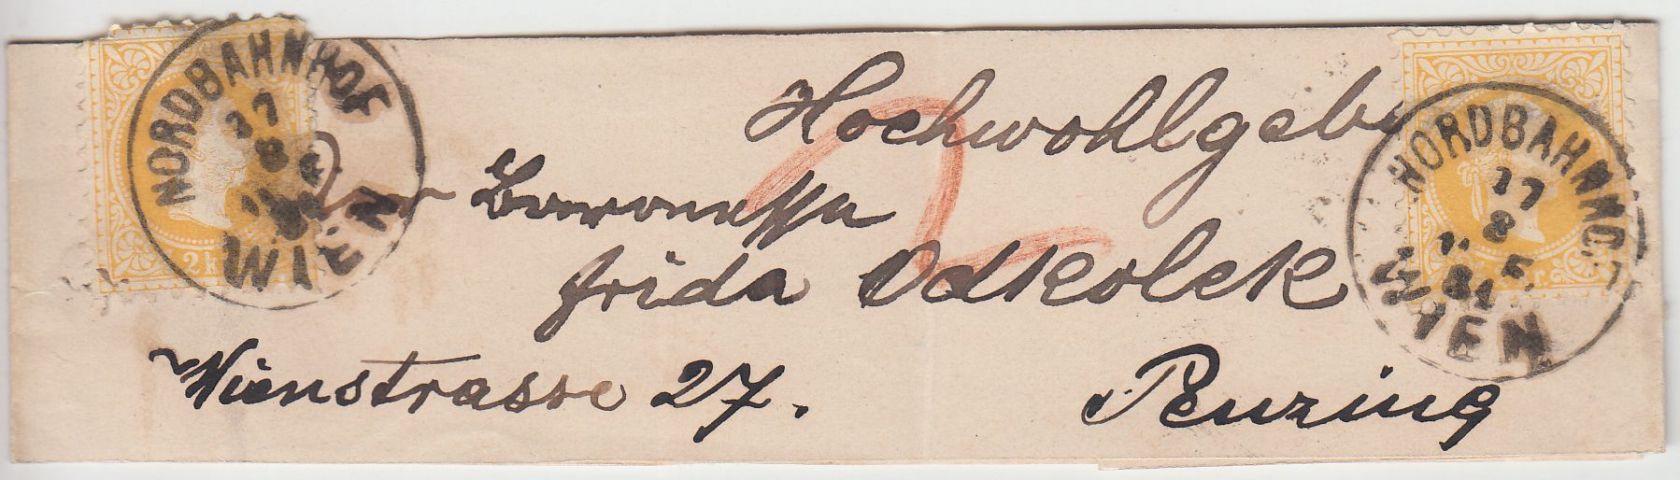 NORDBAHNHOF
17
8
WIEN
2 k
Hochwohlgeb
Baronessa
Frida Odkolek
Wienstrasse 27.
Penzing
2
NORDBAHNHOF
17
8
5
81
WIEN